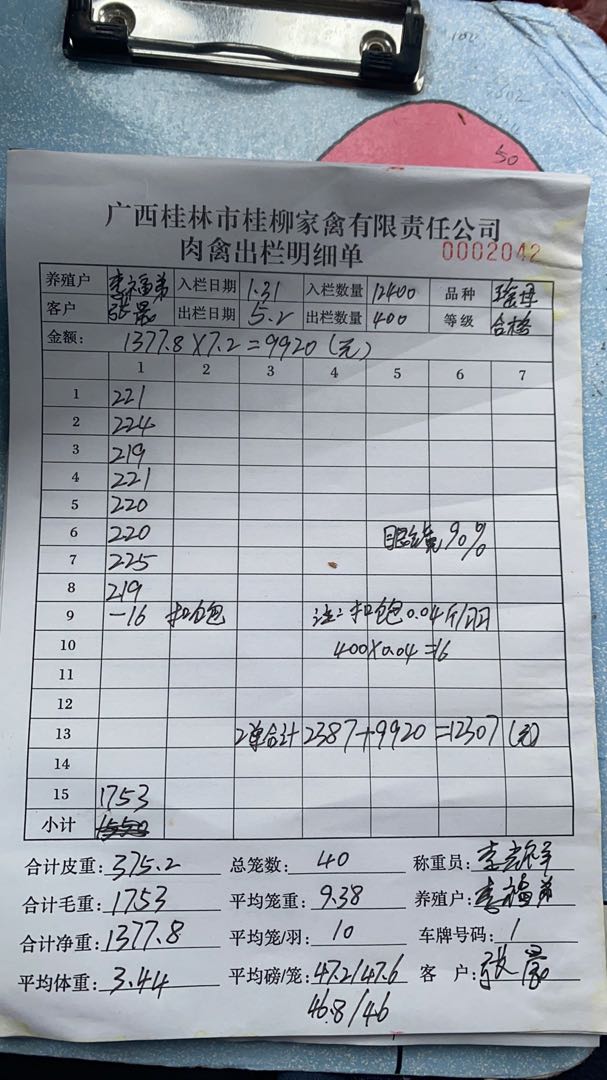 50
广西桂林市桂柳家禽有限责任公司
肉禽出栏明细单 0002042
养殖户 李福弟 入栏日期 1.31 入栏数量 12400 品种
客户 出栏日期 5.2 出栏数量 400 等级 合格
金额: 1377.8×7.2=9920(元)
1 2 3 4 5 6 7
1 221
2 224
3 219
4 221
5 220
6 220 90%
7 225
8 219
9 -16 扣饱 注:扣饱0.04斤/羽
10 400×0.04=16
11
12
13 2单合计2387+9920=12307(元)
14
15 1753
小计
合计皮重:375.2 总笼数:40 称重员:
合计毛重:1753 平均笼重:9.38 养殖户:李福弟
合计净重:1377.8 平均笼/羽:10 车牌号码:1
平均体重:3.44 平均磅/笼:47.2/47.6 客户:
46.8/46